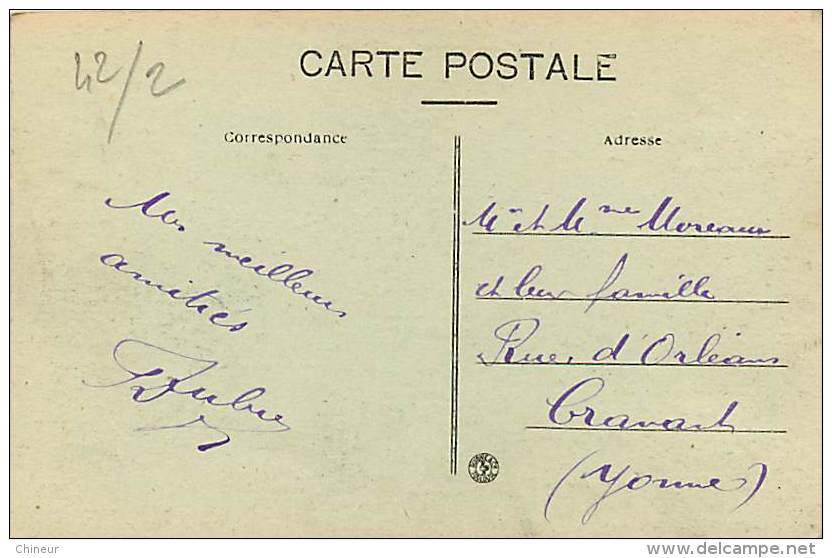 42/2
CARTE POSTALE
Correspondance
Adresse
Mes meilleurs
amitiés
Mr et Mme Moreau
et leur famille
Rue d'Orléans
Cravant
(Yonne)
Chineur
www.delcampe.net